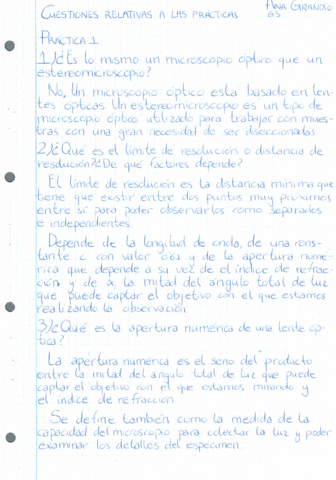 CUESTIONES RELATIVAS A LAS PRÁCTICAS
PRÁCTICA 1
1.) ¿Es lo mismo un microscopio óptico que un
estereomicroscopio?
No, Un microscopio óptico esta basado en len-
tes opticas. Un estereomicroscopio es un tipo de
microscopio óptico utilizado para trabajar con mues-
tras con una gran necesidad de ser diseccionadas.
2.) ¿Que es el limite de resolución o distancia de
resolución? ¿De que factores depende?
El limite de resolución es la distancia minima que
tiene que existir entre dos puntos muy proximos
entre sí para poder observarlos como separados
e independientes.
Depende de la longitud de onda, de una cons-
tante c con valor 0'61 y de la apertura numé-
rica que depende a su vez de el indice de refrac-
ción y de α, la mitad del angulo total de luz
que puede captar el objetivo con el que estamos
realizando la observación.
3.) ¿Qué es la apertura numérica de una lente óp-
tica?
La apertura numérica es el seno del producto
entre la mitad del angulo total de luz que puede
captar el objetivo con el que estamos mirando y
el indice de refracción.
Se define también como la medida de la
capacidad del microscopio para colectar la luz y poder
examinar los detalles del espécimen.